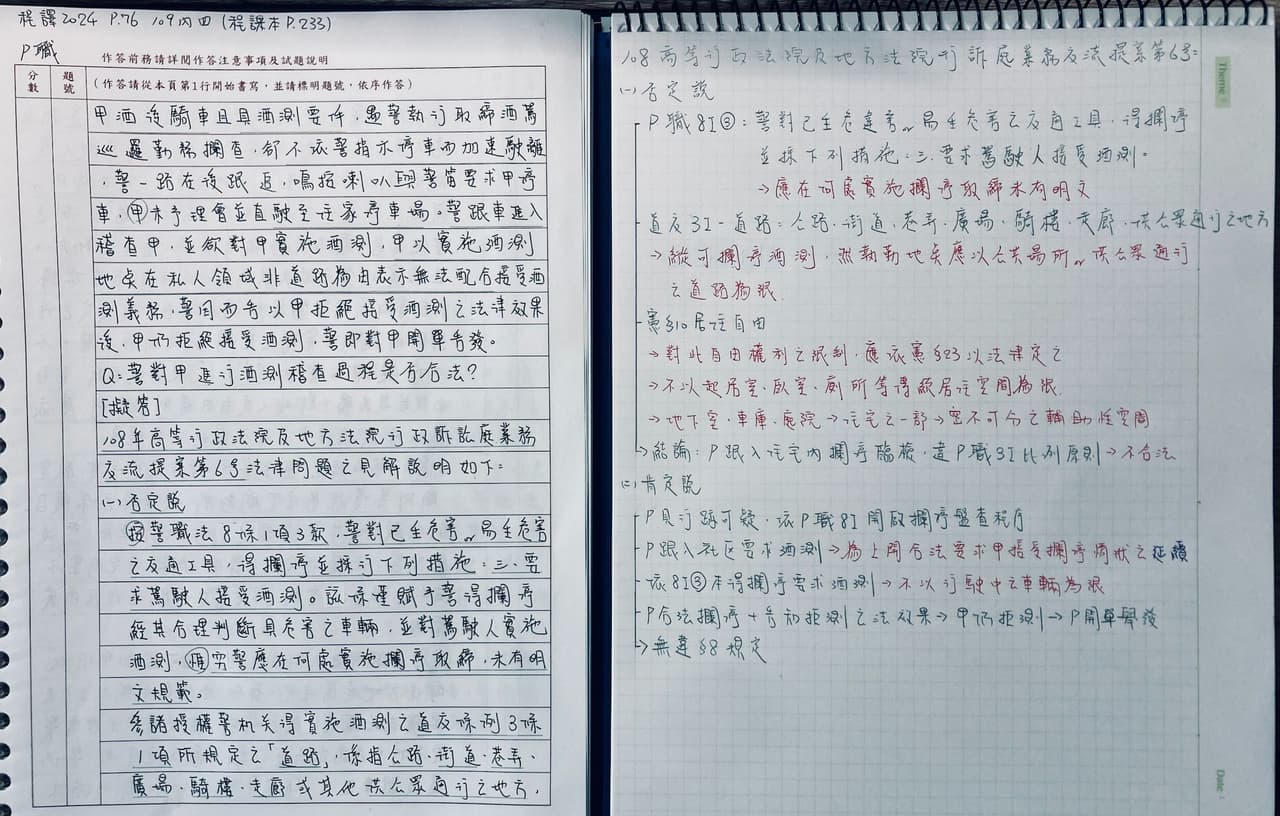 程譯2024 P.76 109內四 (程課本P.233)
P職
作答前務請詳閱作答注意事項及試題說明
分數
題號
(作答請從本頁第1行開始書寫，並請標明題號，依序作答)
甲酒後騎車且具酒測要件，遇警執行取締酒駕
巡邏勤務攔查，卻不依警指示停車而加速駛離
，警一路在後跟追，鳴按喇叭與警笛要求甲停
車，甲未予理會並直駛至住家停車場。警跟車進入
稽查甲，並欲對甲實施酒測，甲以實施酒測
地點在私人領域非道路為由表示無法配合接受酒
測義務，警因而告以甲拒絕接受酒測之法律效果
後，甲仍拒絕接受酒測，警即對甲開單告發。
Q:警對甲進行酒測稽查過程是否合法?
[擬答]
108年高等行政法院及地方法院行政訴訟庭業務
交流提案第6号法律問題之見解說明如下:
(一)否定說
按警職法8條1項3款，警對已生危害or易生危害
之交通工具，得攔停並採行下列措施:三、要
求駕駛人接受酒測。該條僅賦予警得攔停
經其合理判斷具危害之車輛，並對駕駛人實施
酒測，惟究警應在何處實施攔停取締，未有明
文規範。
參諸授權警机关得實施酒測之道交條例3條
1項所規定之「道路」，係指公路、街道、巷弄、
廣場、騎樓、走廊或其他供公眾通行之地方，
108高等行政法院及地方法院行訴庭業務交流提案第6号:
(一)否定說
P職8I③:警對已生危害or易生危害之交通工具，得攔停
並採下列措施:三、要求駕駛人接受酒測。
→應在何處實施攔停取締未有明文
道交3I-道路:公路、街道、巷弄、廣場、騎樓、走廊、供公眾通行之地方
→縱可攔停酒測，然執勤地點應以公共場所or供公眾通行
之道路為限.
憲§10居住自由
→對此自由權利之限制，應依憲§23以法律定之
→不以起居室、臥室、廁所等得絕居住空間為限
→地下室、車庫、庭院→住宅之一部→密不可分之輔助性空間
→結論:P跟入住宅內攔停臨檢，違P職3I比例原則→不合法
(二)肯定說
P見行跡可疑，依P職8I開啟攔停盤查程序
P跟入社区要求酒測→為上開合法要求甲接受攔停情狀之延續
依8I③本得攔停要求酒測→不以行駛中之車輛為限
P合法攔停+告知拒測之法效果→甲仍拒測→P開單舉發
→無違§8規定
Theme:
Date: